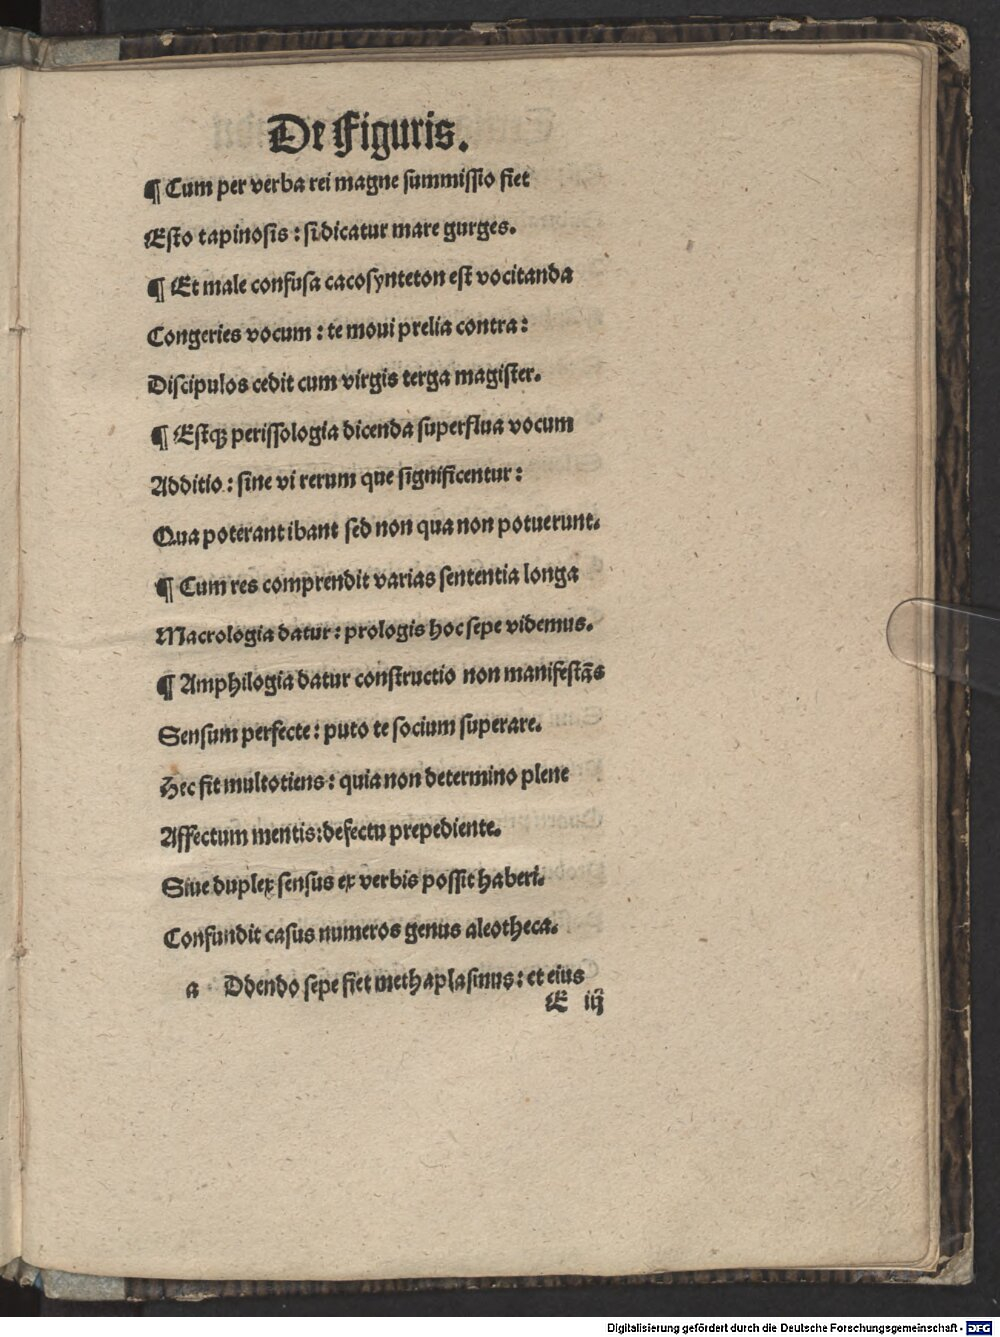 De Figuris.
¶ Cum per verba rei magne summissio fiet
Esto tapinosis : si dicatur mare gurges.
¶ Et male confusa cacosynteton est vocitanda
Congeries vocum : te moui prelia contra :
Discipulos cedit cum virgis terga magister.
¶ Estqꝫ perissologia dicenda superflua vocum
Additio : sine vi rerum que significentur :
Qua poterant ibant sed non qua non potuerunt.
¶ Cum res comprendit varias sententia longa
Macrologia datur : prologis hoc sepe videmus.
¶ Amphilogia datur constructio non manifestās
Sensum perfecte : puto te socium superare.
Hec fit multotiens : quia non determino plene
Affectum mentis: defectu prepediente.
Siue duplex sensus ex verbis possit haberi.
Confundit casus numeros genus aleotheca.
a Ddendo sepe fiet methaplasmus : et eius
E iij
Digitalisierung gefördert durch die Deutsche Forschungsgemeinschaft - DFG